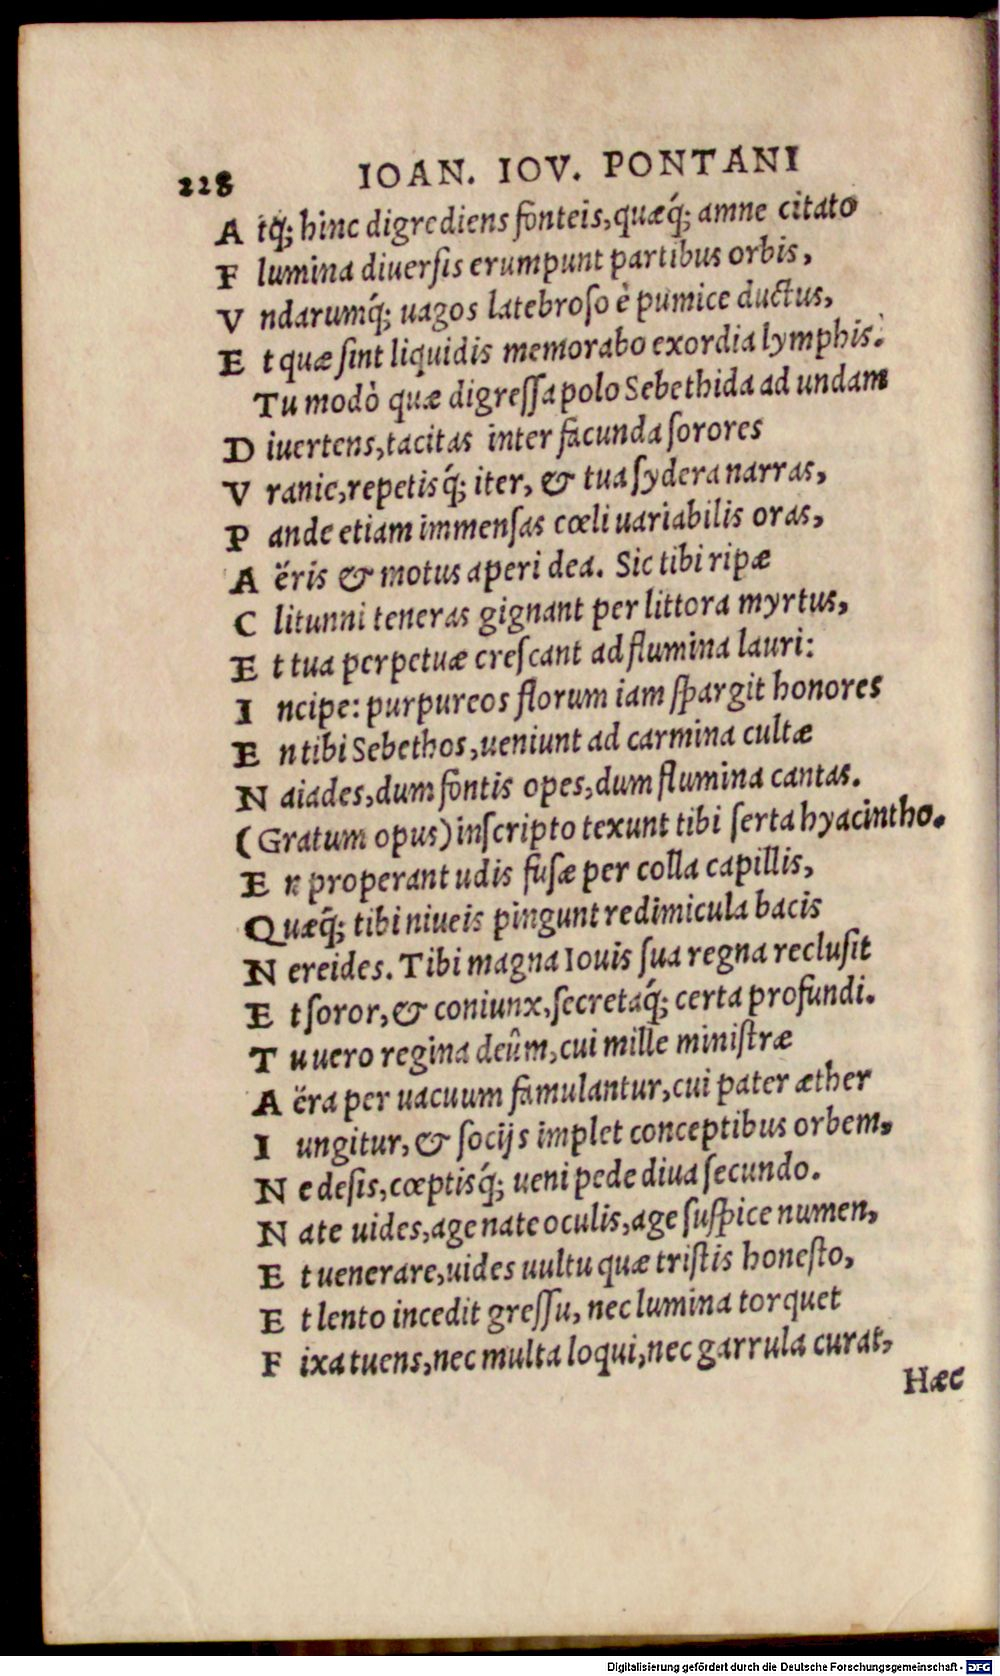 228 IOAN. IOV. PONTANI
A tq́; hinc digrediens fonteis, quæq́; amne citato
F lumina diuerſis erumpunt partibus orbis,
V ndarumq́; uagos latebroſo è pumice ductus,
E t quæ ſint liquidis memorabo exordia lymphis.
Tu modò quæ digreſſa polo Sebethida ad undam
D iuertens, tacitas inter facunda ſorores
V ranie, repetisq́; iter, & tua ſydera narras,
P ande etiam immenſas cœli uariabilis oras,
A ëris & motus aperi dea. Sic tibi ripæ
C litunni teneras gignant per littora myrtus,
E t tua perpetuæ creſcant ad flumina lauri:
I ncipe: purpureos florum iam ſpargit honores
E n tibi Sebethos, ueniunt ad carmina cultæ
N aiades, dum fontis opes, dum flumina cantas.
(Gratum opus) inſcripto texunt tibi ſerta hyacintho.
E n properant udis fuſæ per colla capillis,
Quæq́; tibi niueis pingunt redimicula bacis
N ereides. Tibi magna Iouis ſua regna recluſit
E t ſoror, & coniunx, ſecretaq́; certa profundi.
T u uero regina deûm, cui mille miniſtræ
A ëra per uacuum famulantur, cui pater æther
I ungitur, & ſocijs implet conceptibus orbem,
N e deſis, cœptisq́; ueni pede diua ſecundo.
N ate uides, age nate oculis, age ſuſpice numen,
E t uenerare, uides uultu quæ triſtis honeſto,
E t lento incedit greſſu, nec lumina torquet
F ixa tuens, nec multa loqui, nec garrula curat,
Hæc
Digitalisierung gefördert durch die Deutsche Forschungsgemeinschaft - DFG